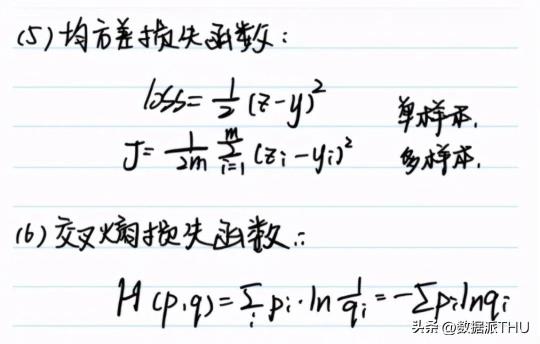 (5) 均方差损失函数：
loss = 1/2 (z-y)² 单样本.
J = 1/2m Σ_{i=1}^{m} (zi-yi)² 多样本.
(6) 交叉熵损失函数：
H(p,q) = Σ_i pi·ln 1/qi = -Σpilnqi
头条 @数据派THU